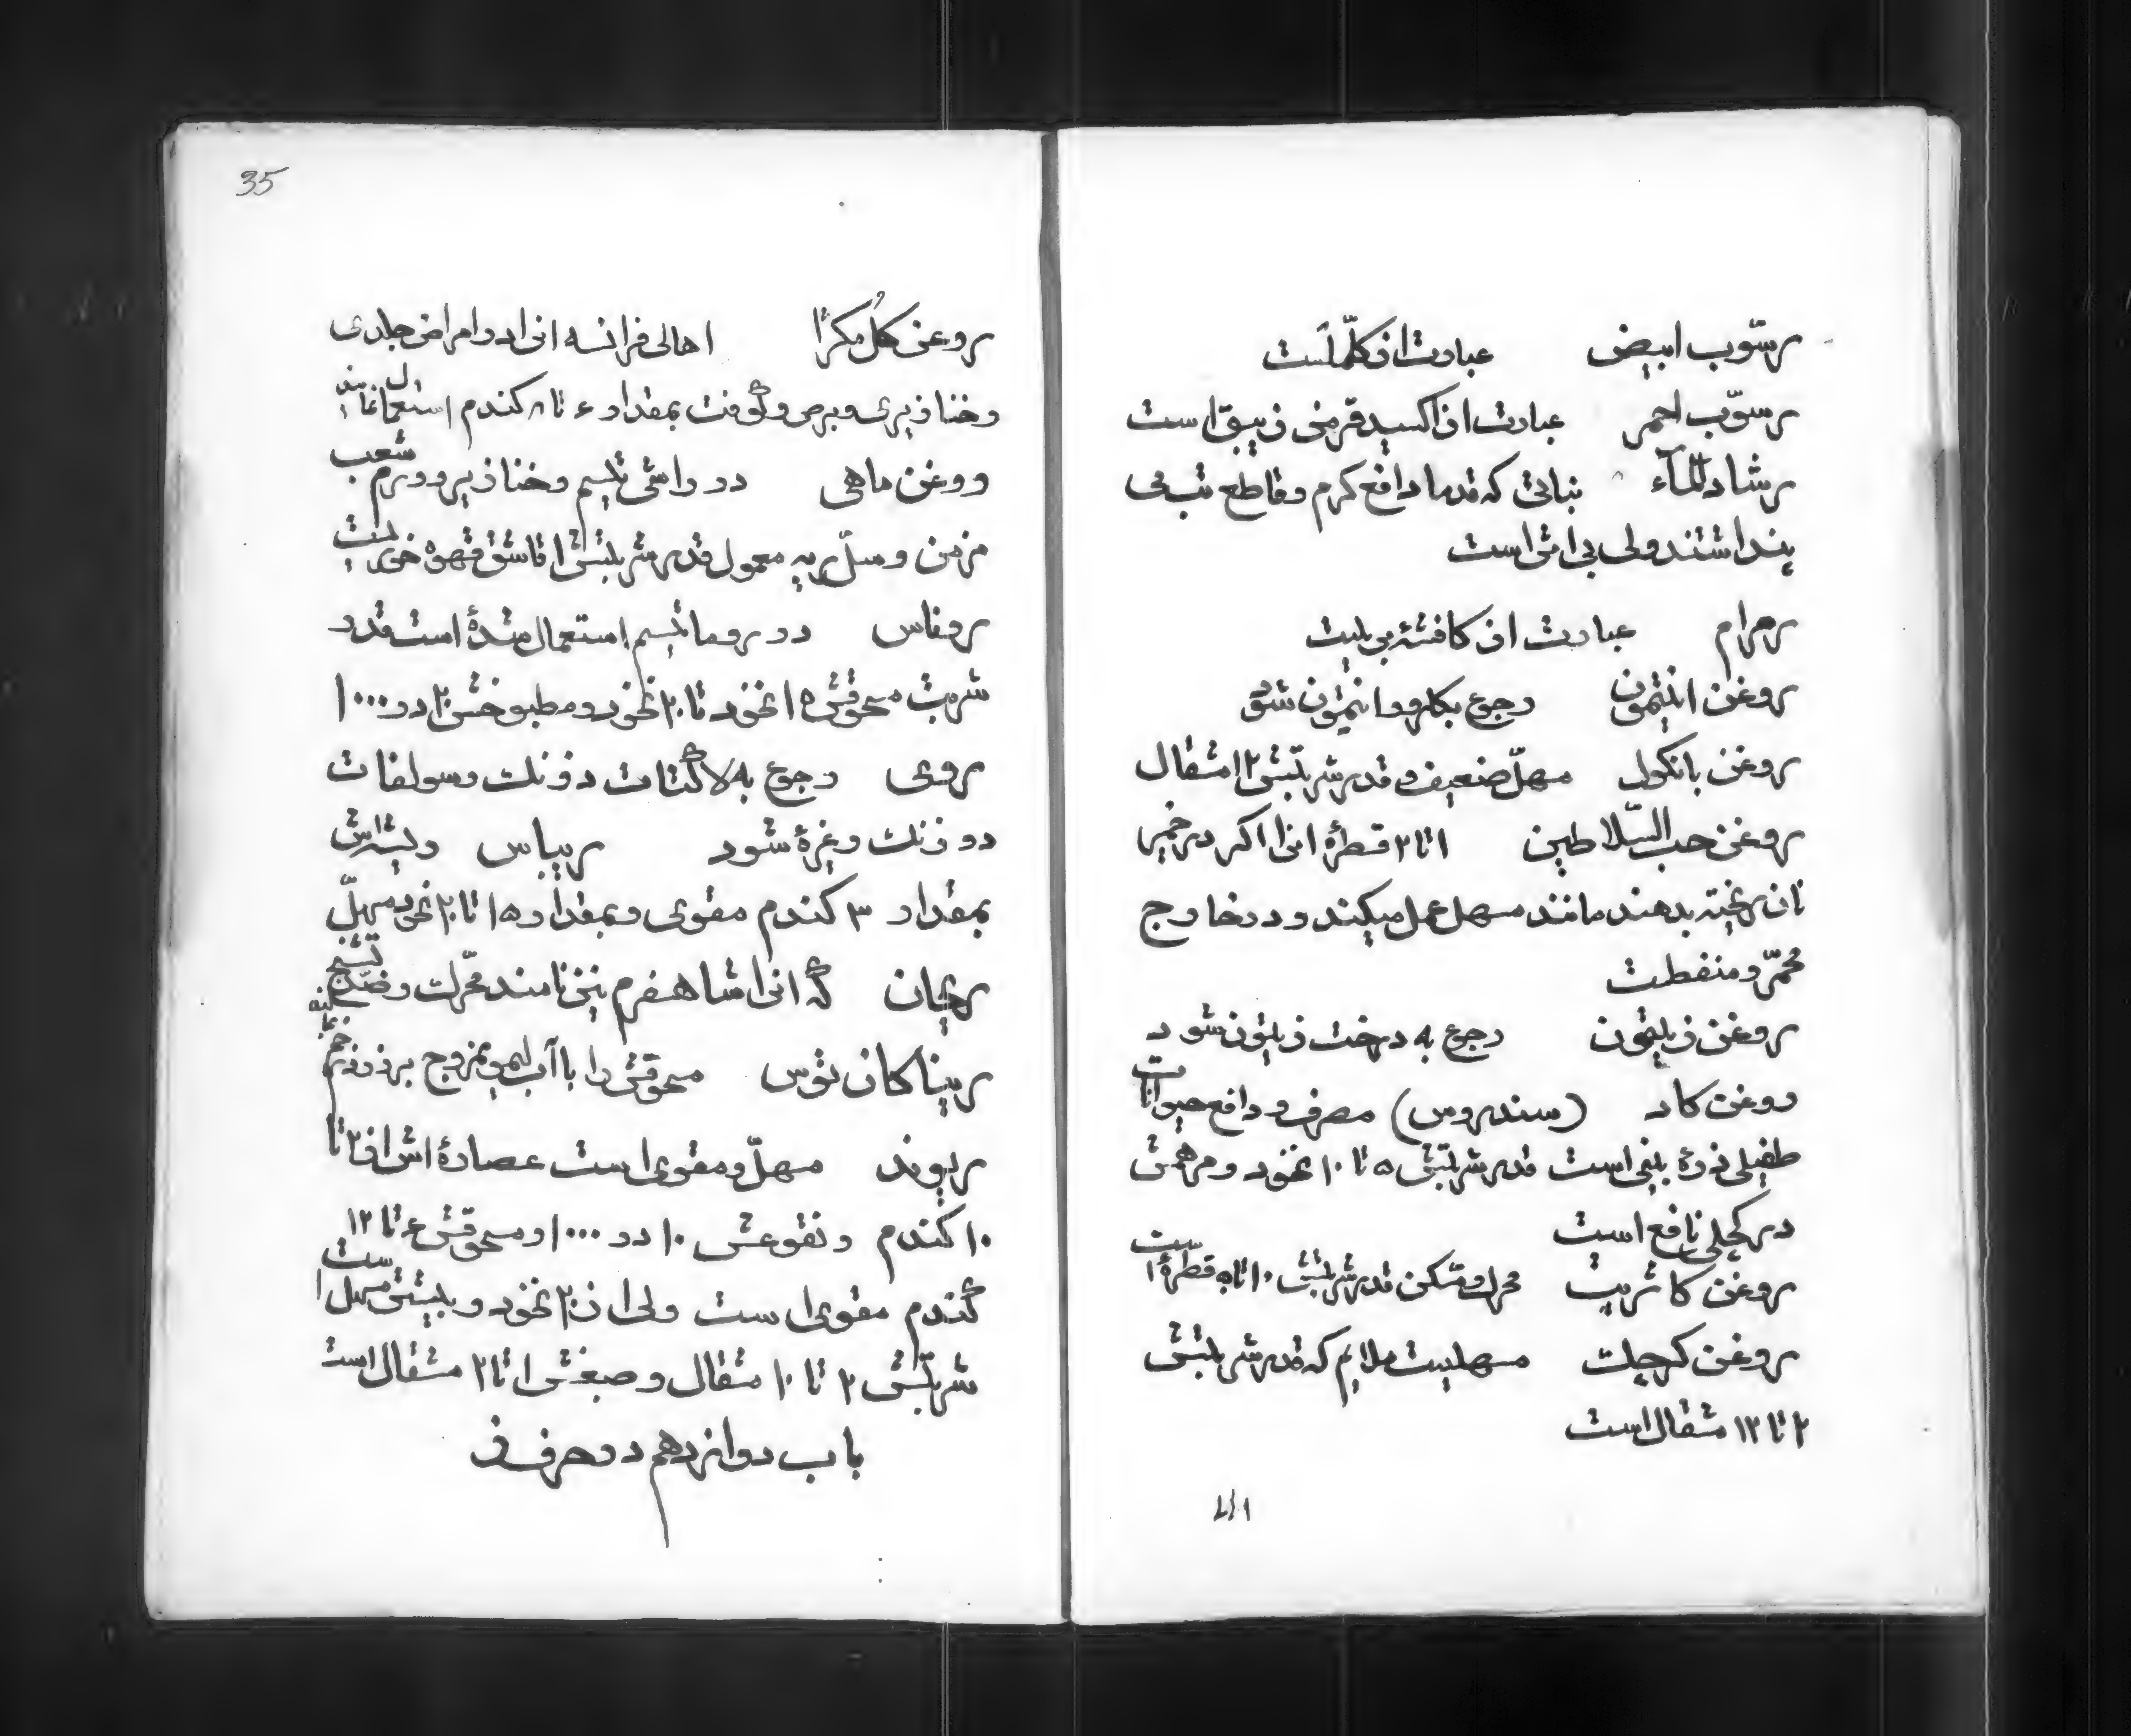 رسوّب ابیض عبارت از کلّملَست
رسوّب احمر عبارت از اکسید قرمزی زیبق است
رشاد المآء نباتی که قدما دافع کرم و قاطع تب می
پنداشتند ولی بی اثر است
رمرام عبارت از کافشهٔ بی بلیت
روغن انتیمون رجوع بکلرور انتیمون شود
روغن بانکول مسهلّ ضعیف و قدر شربتش ۱۲ مثقال
روغن حب السّلاطین ۱ تا ۲ قطرهٔ انرا اکر در خمیر
نان ریخته بدهند مانند مسهل عمل میکند و در خارج
محمّر و منفطت
روغن زیتون رجوع به درخت زیتون شود
روغن کاد (سندروس) معرف و دافع حیوانات
طفیلی زرهٔ بینی است قدر شربتش ۵ تا ۱۰ نخود و مرهمش
در کچلی نافع است
روغن کاثربیت محرك و مسّکن قدر شربتش ۱۰ تا ۱۵ قطرهٔ است
روغن کرچك مسهلیست ملایم که قدر شربتش
۲ تا ۱۲ مثقال است
۱/۱۷
35
روغن کُل مکرّا اهالی فرانسه انرا در امراض جلدی
و خنازیری و برص و کوفت بمقدار ۴ تا ۸ کندم استعمال نمایند
روغن ماهی در راشی تیسم و خنازیر و ورم شعب
مزمن و سلّ ریه معمول قدر شربتش ۱ قاشق قهوه خوریست
روناس در روماتیسم استعمال شدهٔ است قدر
شربت مسحوقش ۱۵ نخود تا ۲۰ نخود و مطبوخش ۲۰ در ۱۰۰۰
روی رجوع به لاکتات دوزنك و سولفات
دوزنك و غیرهٔ شود ریباس ریشه‌اش
بمقدار ۳ کندم مقوی و بمقدار ۱۵ تا ۲۰ نخود مسهلّ
ریحان که انرا شاهفرم نیز نامند محّرك و ضدّ تشنج
ریناکانتوس مسحوقش را با آب لیمو ممزوج بر زرد زخم
ریوند مسهلّ و مقوی است عصارهٔ اش از ۲ تا
۱۰ کندم و نقوعش ۱۰ در ۱۰۰۰ و مسحوقش ۴ تا ۱۲
کندم مقوی است ولی از ۲۰ نخود و بیشتش مسهل است
شربتش ۲ تا ۱۰ مثقال و صبغش ۱ تا ۲ مثقال است
باب دوازدهم در حرف ز